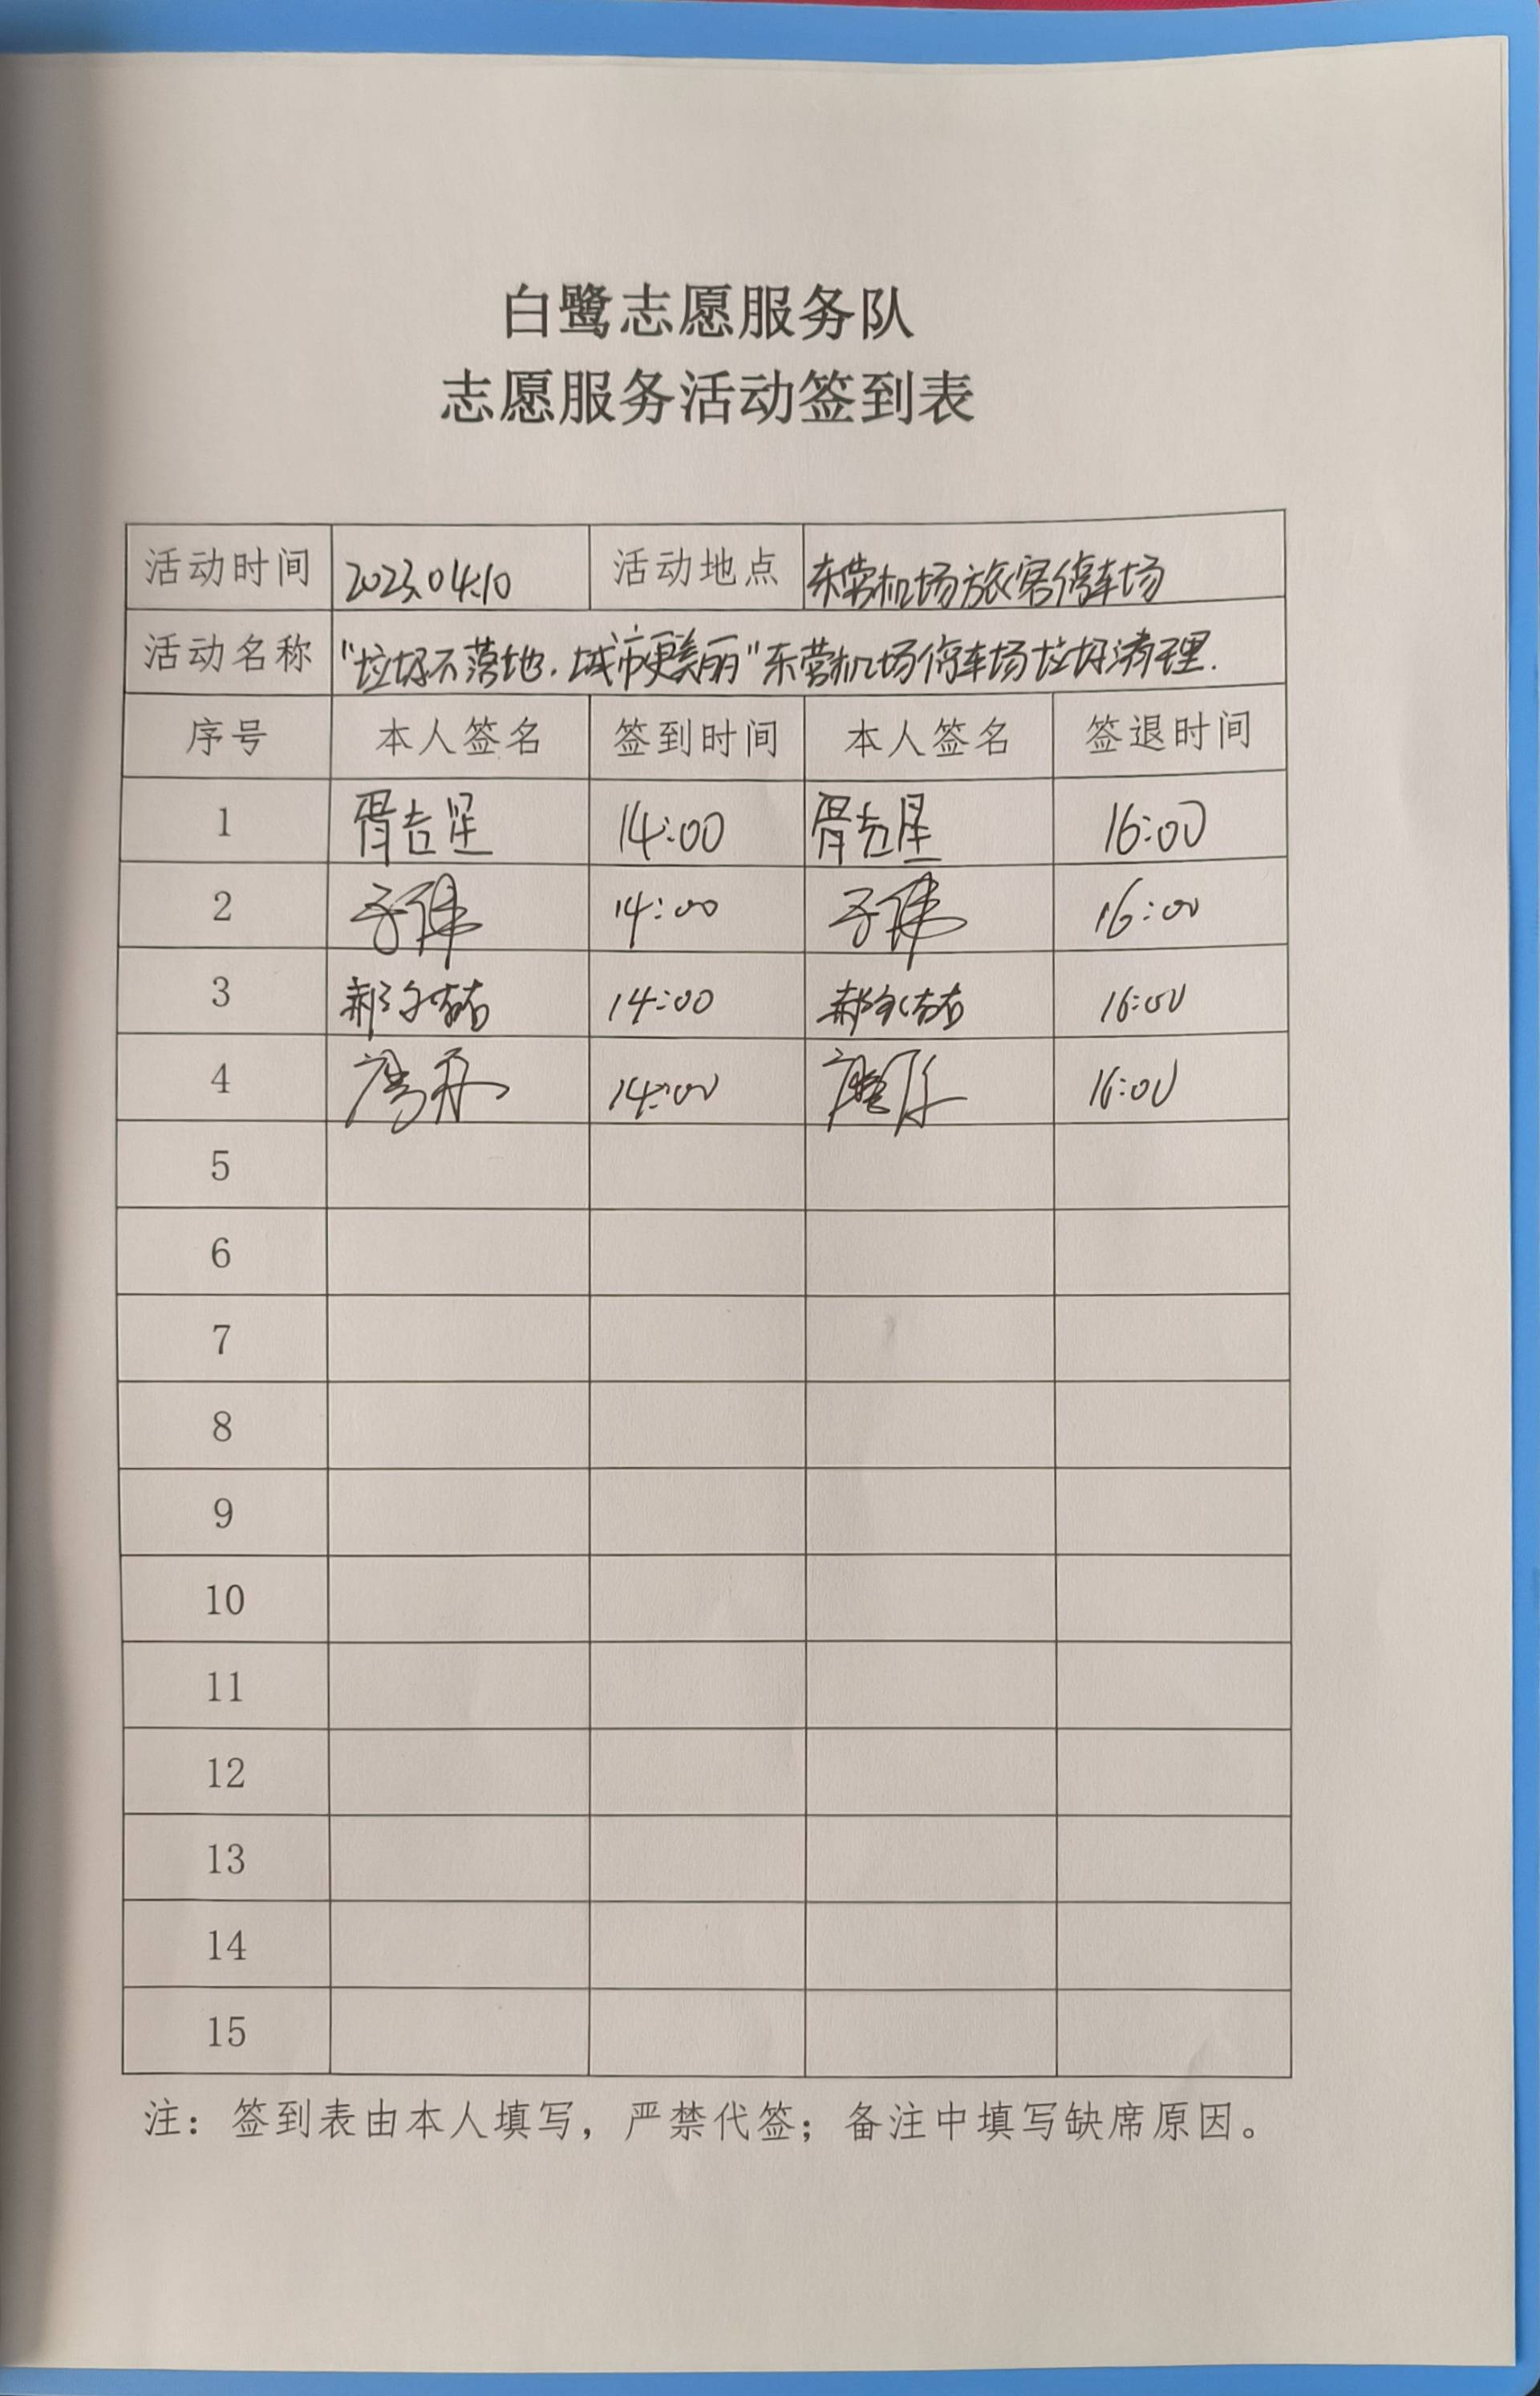 白鹭志愿服务队
志愿服务活动签到表
活动时间 2023.04.10 活动地点 东营机场旅客停车场
活动名称 "垃圾不落地.城市更美丽"东营机场停车场垃圾清理.
序号 本人签名 签到时间 本人签名 签退时间
1 胥吉星 14:00 胥吉星 16:00
2 14:00 16:00
3 14:00 16:00
4 14:00 16:00
5
6
7
8
9
10
11
12
13
14
15
注：签到表由本人填写，严禁代签；备注中填写缺席原因。